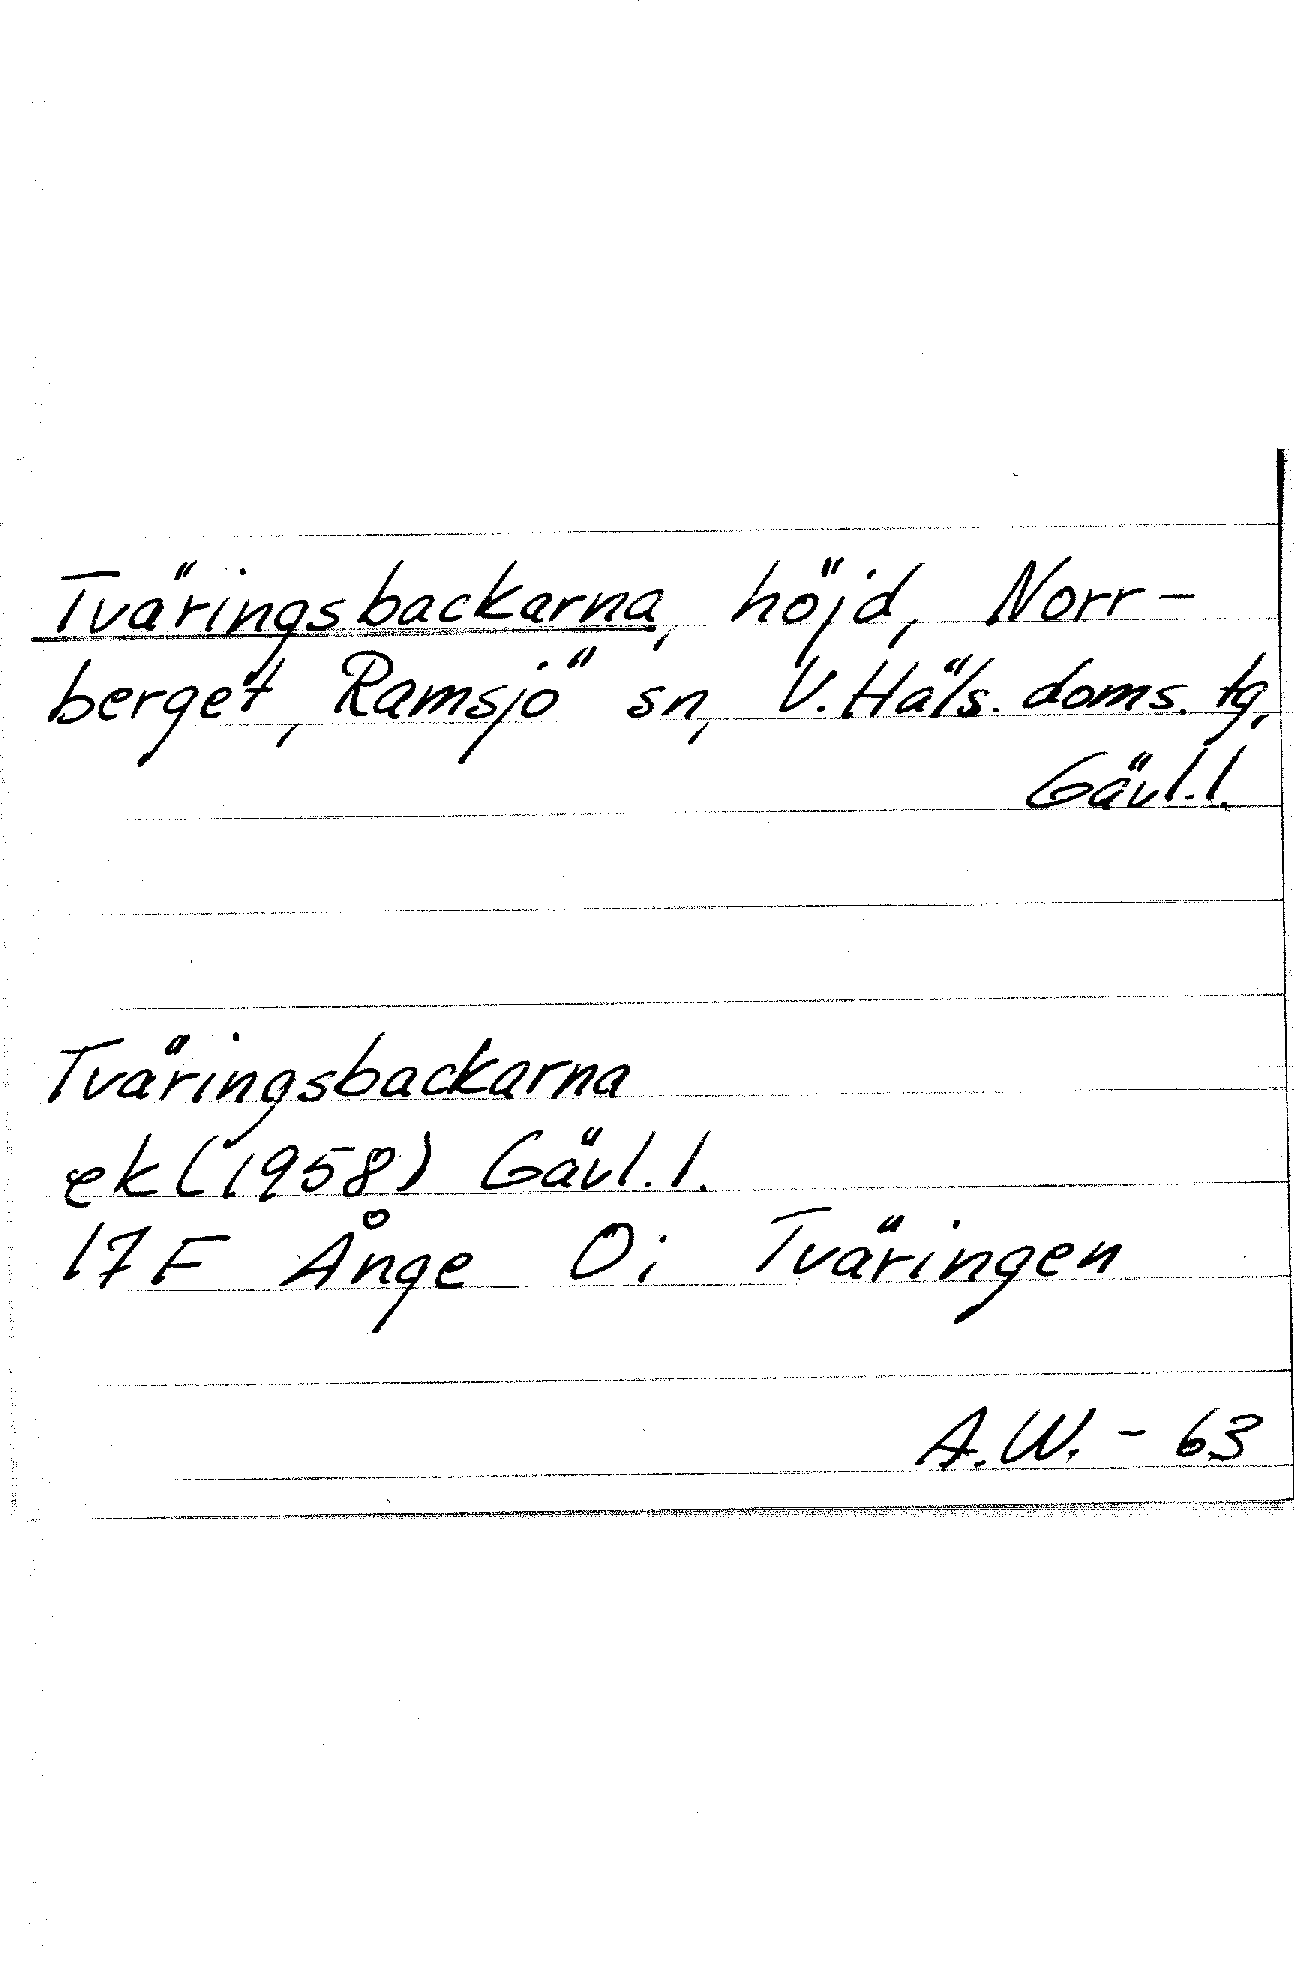 Tväringsbackarna, höjd, Norr-
berget, Ramsjö sn, V. Häls. doms. tg,
Gävl. l.
Tväringsbackarna
ek (1958) Gävl. l.
17 F Ånge 0i Tväringen
A.W. - 63